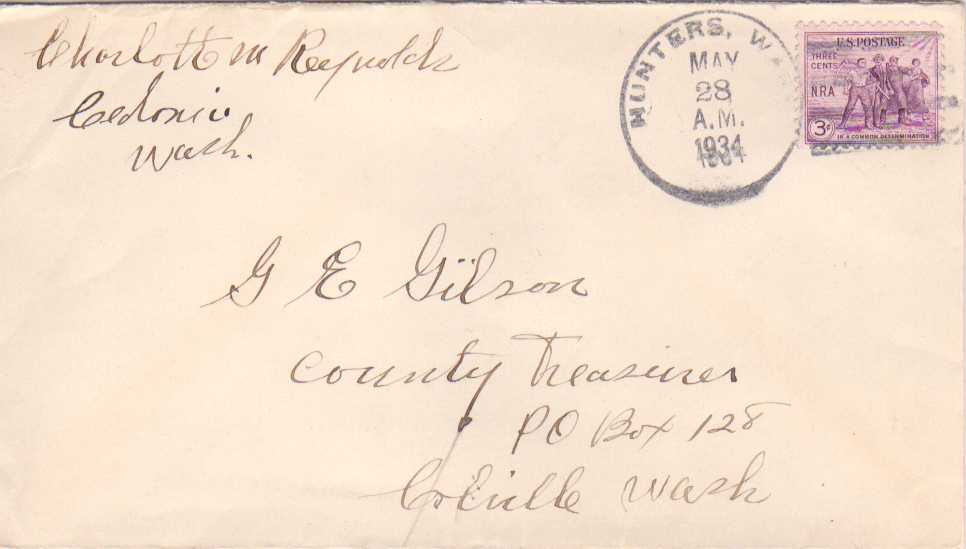 Charlott M Reynolds
Cedonia
Wash.
HUNTERS, WASH
MAY
28
A.M.
1934
U.S. POSTAGE
THREE
CENTS
NRA
3¢
IN A COMMON DETERMINATION
G E Gilson
County Treasurer
PO Box 128
Colville Wash